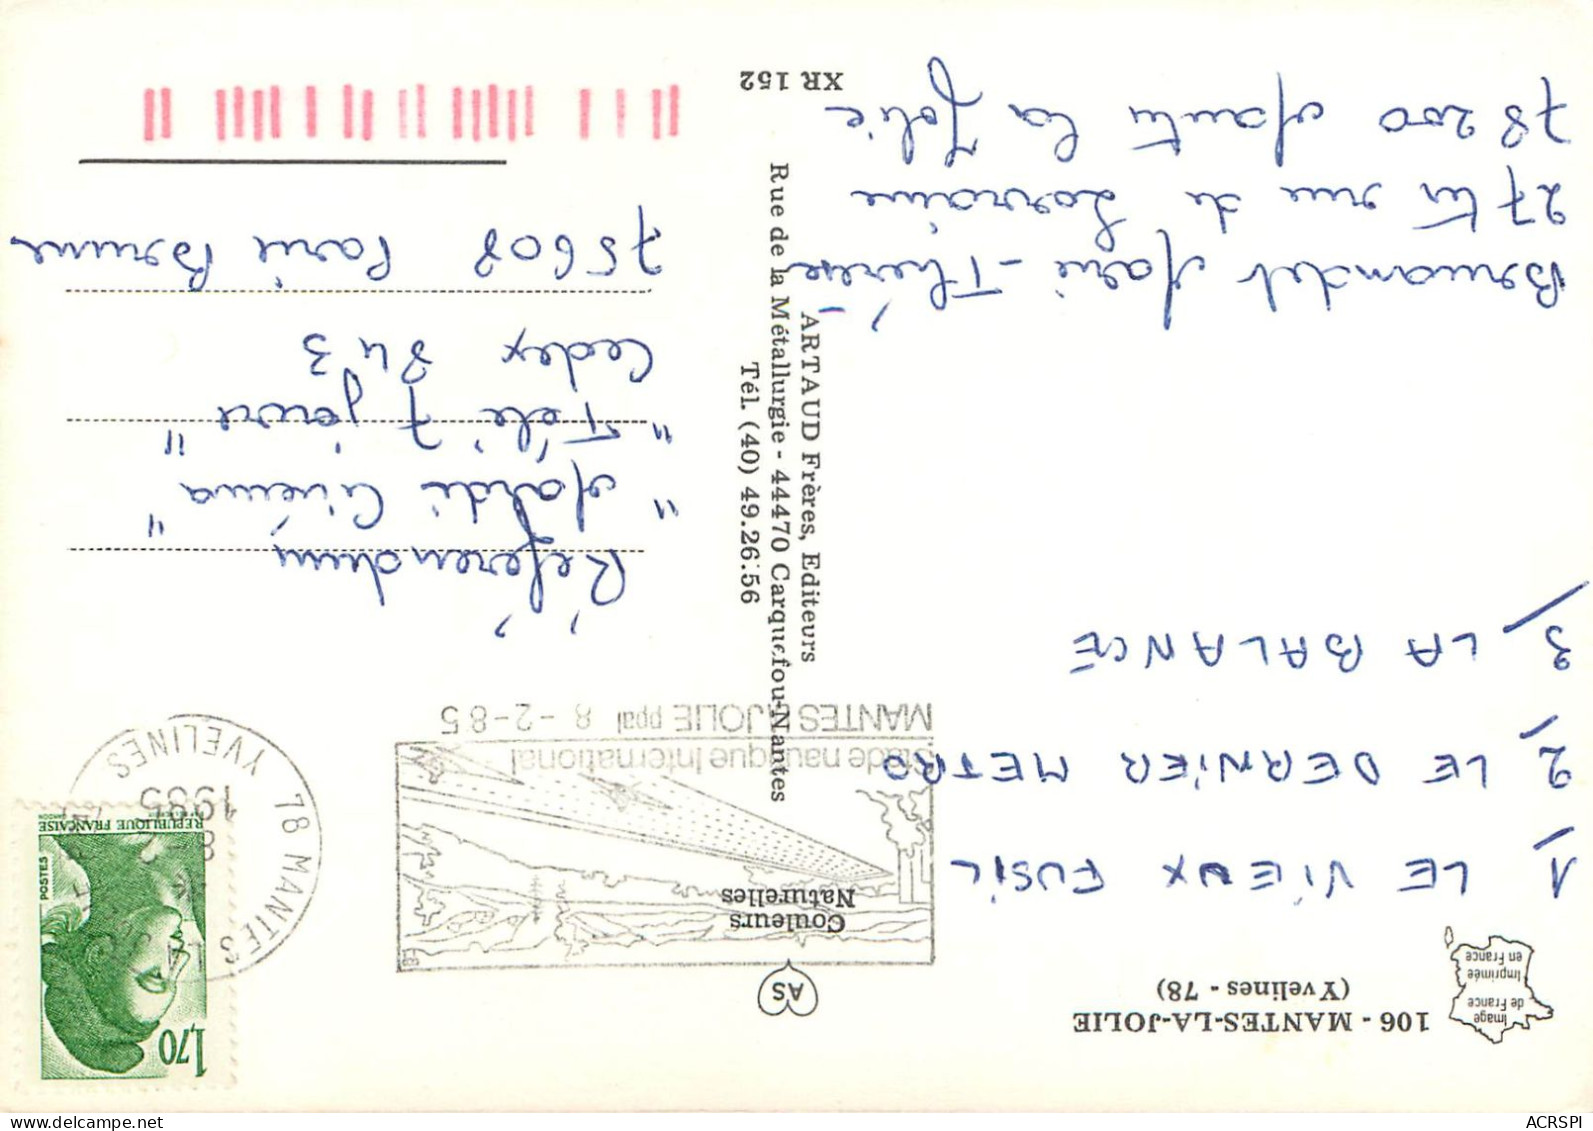 106 - MANTES-LA-JOLIE
(Yvelines - 78)
Image
de France
Imprimée
en France
1/ LE VIEUX FUSIL
2/ LE DERNIER METRO
3/ LA BALANCE
Marie-Thérèse
27 rue de Lorraine
78200 la Jolie
AS
Couleurs
Naturelles
ARTAUD Frères, Editeurs
Rue de la Métallurgie - 44470 Carquefou-Nantes
Tél. (40) 49.26.56
XR 152
Stade nautique International
MANTES LA JOLIE ppal 8-2-85
EB
78 MANTES
1985
YVELINES
1,70
POSTES
REPUBLIQUE FRANÇAISE
Référendum
"Mardi Cinéma"
"Télé 7 jours"
Cedex 843
75608 Paris Brune
ACRSPI